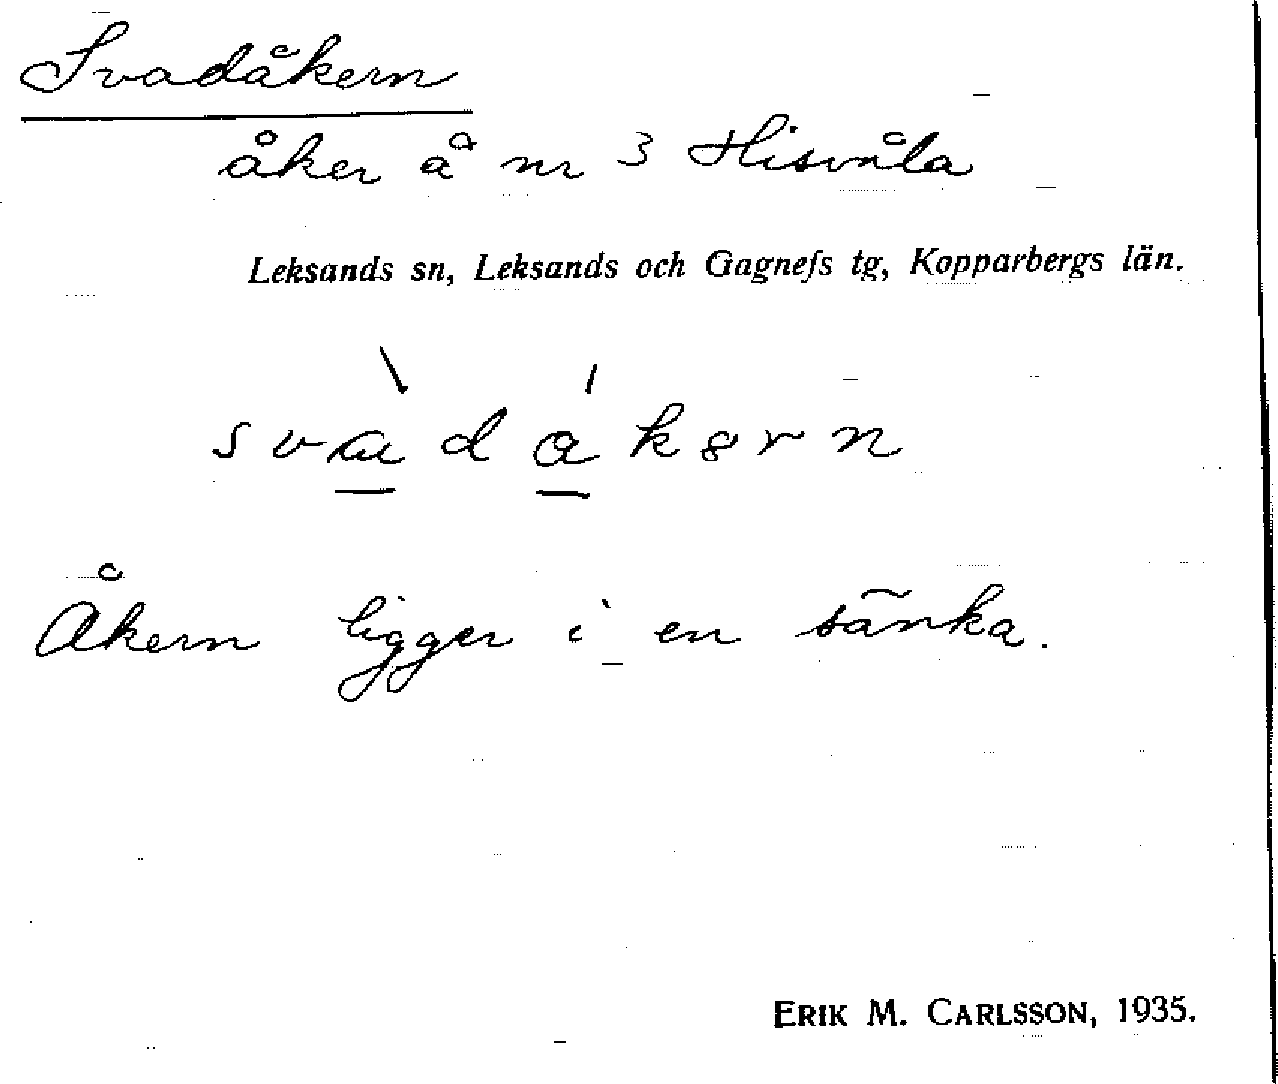 Svadåkern
åker å nr 3 Hisvåla
Leksands sn, Leksands och Gagnefs tg, Kopparbergs län.
svàdákərn
Åkern ligger i en sänka.
ERIK M. CARLSSON, 1935.